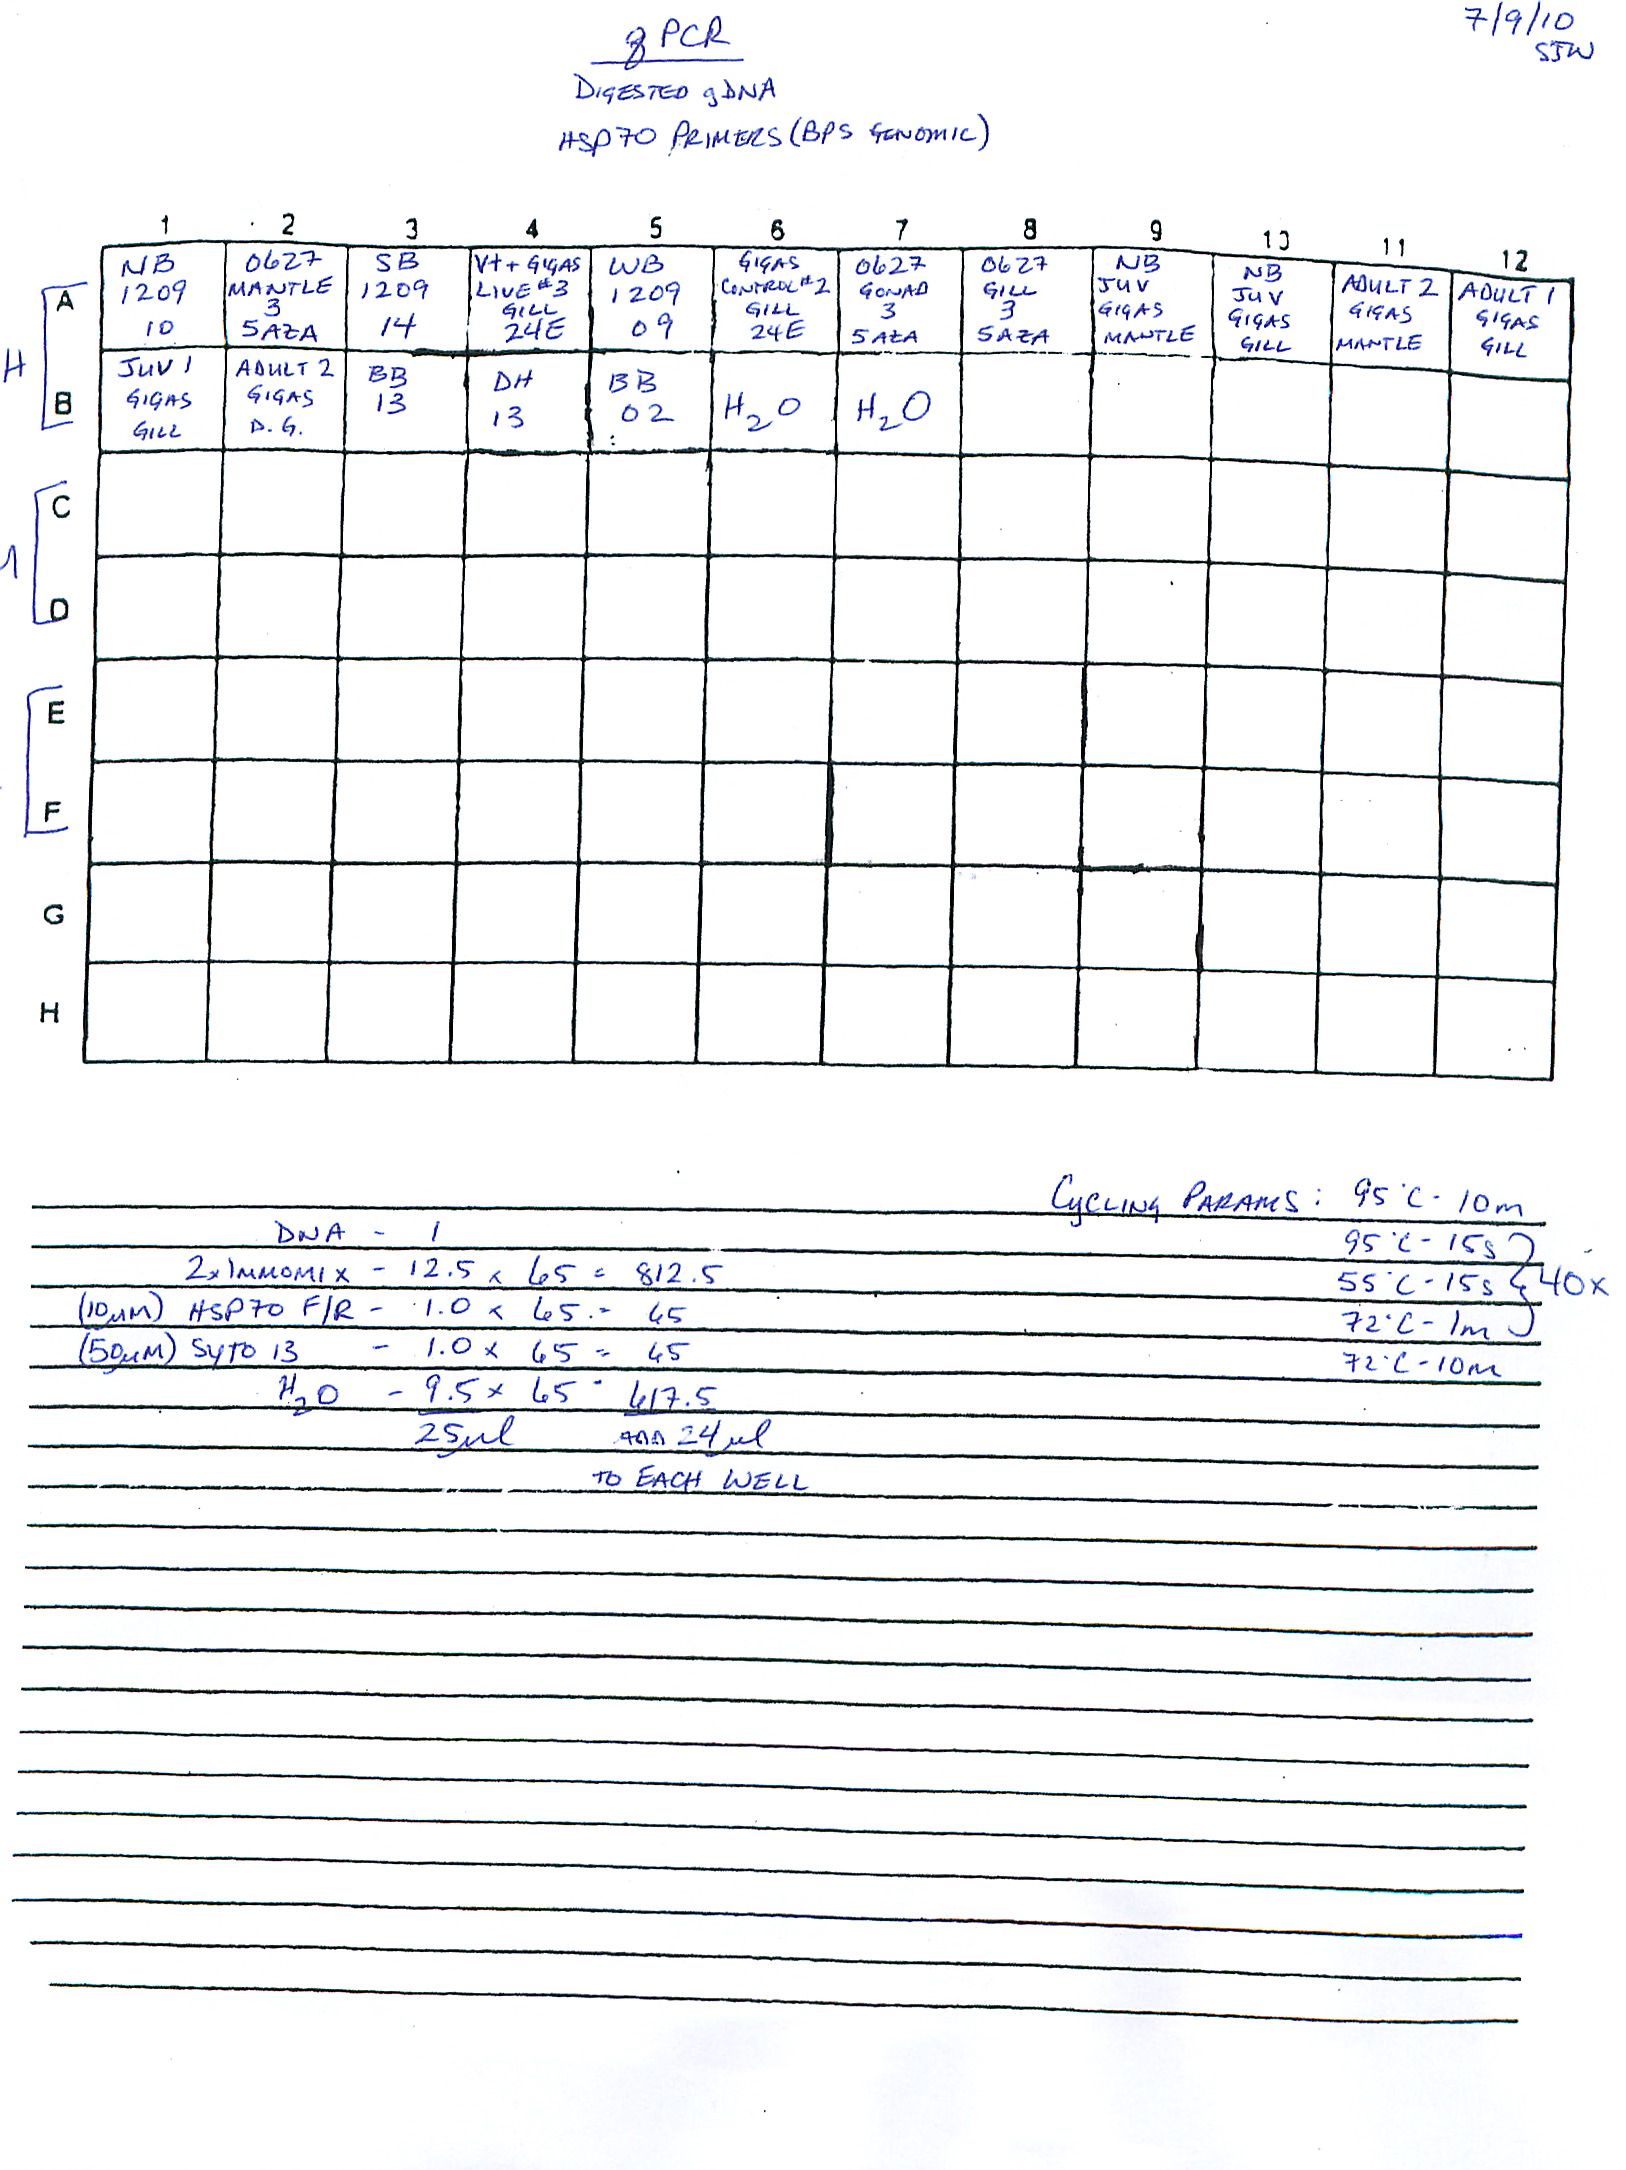 7/9/10
SJW
qPCR
DIGESTED gDNA
HSP70 PRIMERS (BPS GENOMIC)
1 2 3 4 5 6 7 8 9 10 11 12
H
A
NB
1209
10
0627
MANTLE
3
5AZA
SB
1209
14
Vt++ GIGAS
LIVE #3
GILL
24E
WB
1209
09
GIGAS
CONTROL #2
GILL
24E
0627
GONAD
3
5AZA
0627
GILL
3
5AZA
NB
JUV
GIGAS
MANTLE
NB
JUV
GIGAS
GILL
ADULT 2
GIGAS
MANTLE
ADULT 1
GIGAS
GILL
B
JUV 1
GIGAS
GILL
ADULT 2
GIGAS
D.G.
BB
13
DH
13
BB
02
H2O
H2O
C
D
E
F
G
H
CYCLING PARAMS: 95°C - 10m
95°C - 15s
55°C - 15s } 40x
72°C - 1m
72°C - 10m
DNA - 1
2x IMMOMIX - 12.5 x 65 = 812.5
(10µM) HSP70 F/R - 1.0 x 65 = 65
(50µM) SYTO 13 - 1.0 x 65 = 65
H2O - 9.5 x 65 = 617.5
25µl ADD 24µl
TO EACH WELL